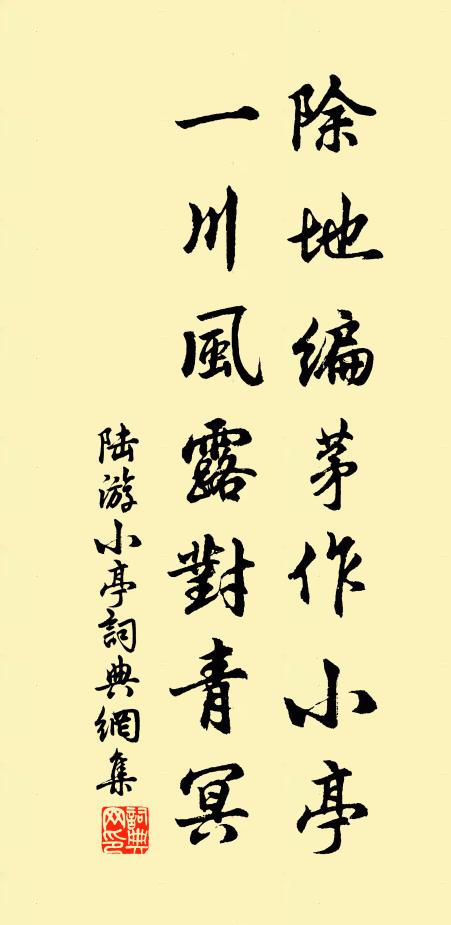 除地編茅作小亭
一川風露對青冥
陆游小亭詞典網集
詞典网印